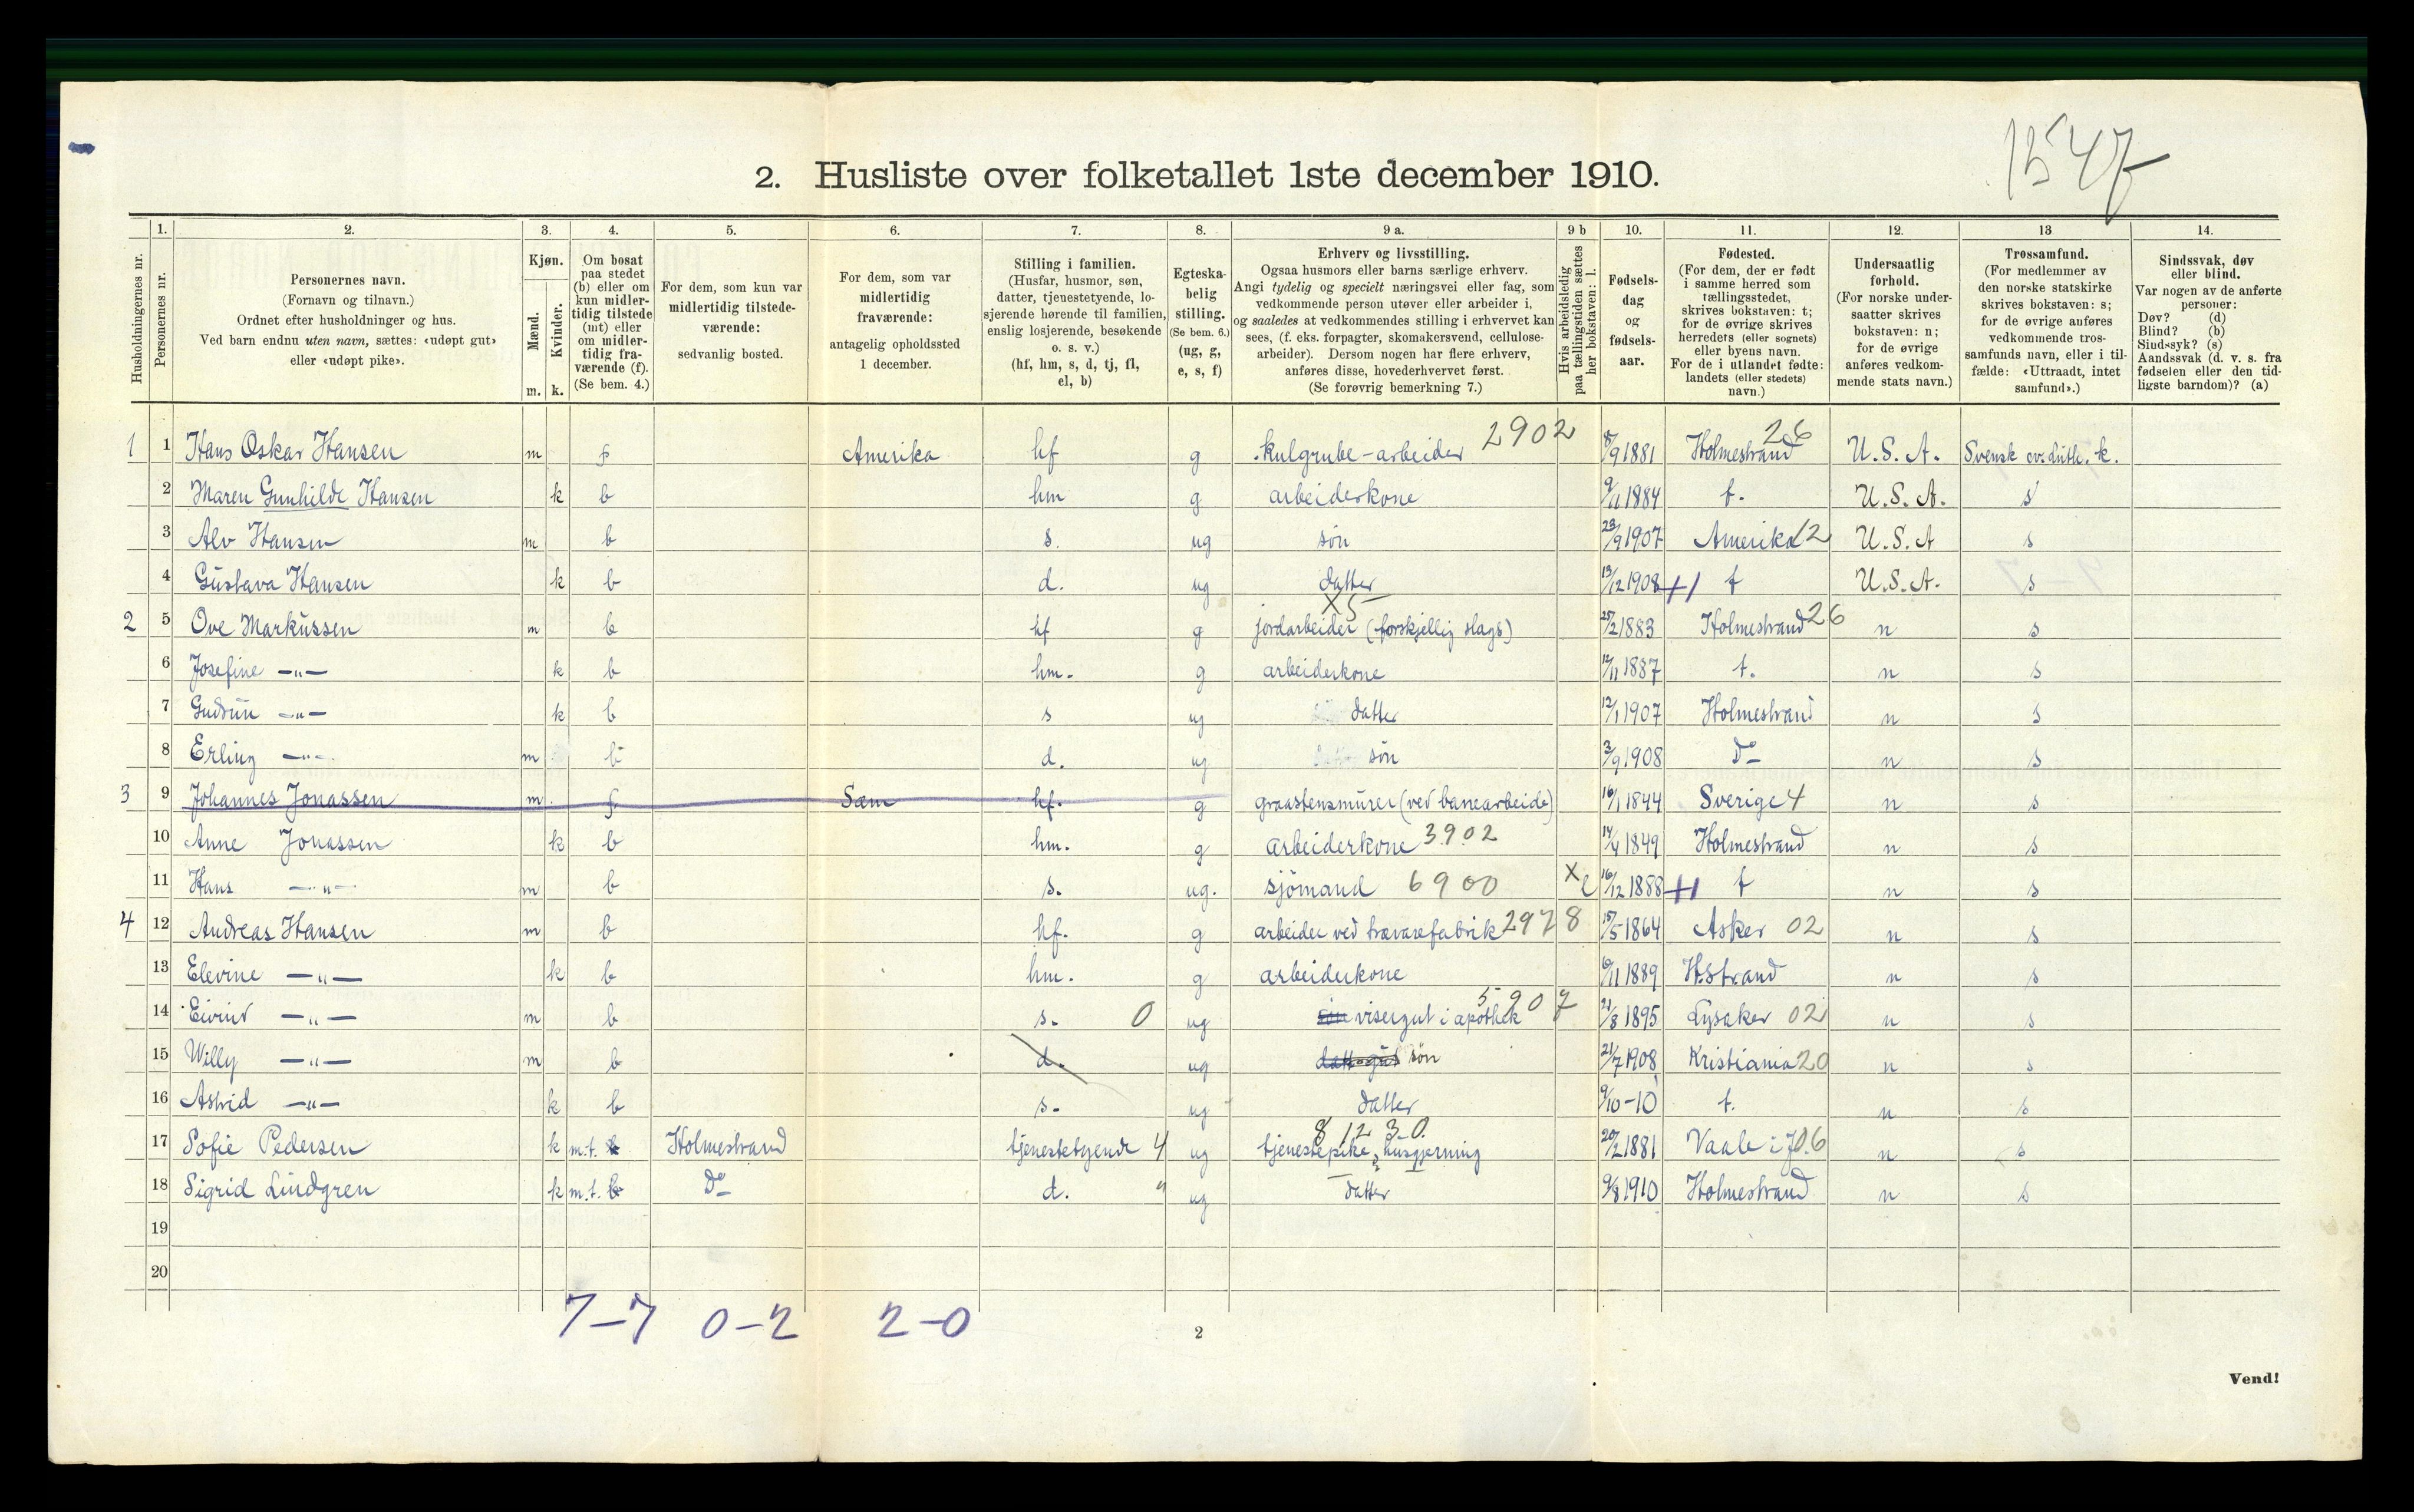 1547
2. Husliste over folketallet 1ste december 1910.
Husholdningernes nr.
1. Personernes nr.
2. Personernes navn. (Fornavn og tilnavn.) Ordnet efter husholdninger og hus. Ved barn endnu uten navn, sættes: «udøpt gut» eller «udøpt pike».
3. Kjøn. Mænd. m. Kvinder. k.
4. Om bosat paa stedet (b) eller om kun midlertidig tilstede (mt) eller om midlertidig fraværende (f). (Se bem. 4.)
5. For dem, som kun var midlertidig tilstedeværende: sedvanlig bosted.
6. For dem, som var midlertidig fraværende: antagelig opholdssted 1 december.
7. Stilling i familien. (Husfar, husmor, søn, datter, tjenestetyende, losjerende hørende til familien, enslig losjerende, besøkende o. s. v.) (hf, hm, s, d, tj, fl, el, b)
8. Egteskabelig stilling. (Se bem. 6.) (ug, g, e, s, f)
9 a. Erhverv og livsstilling. Ogsaa husmors eller barns særlige erhverv. Angi tydelig og specielt næringsvei eller fag, som vedkommende person utøver eller arbeider i, og saaledes at vedkommendes stilling i erhvervet kan sees, (f. eks. forpagter, skomakersvend, cellulosearbeider). Dersom nogen har flere erhverv, anføres disse, hovederhvervet først. (Se forøvrig bemerkning 7.)
9 b Hvis arbeidsledig paa tællingstiden sættes her bokstaven: l.
10. Fødselsdag og fødselsaar.
11. Fødested. (For dem, der er født i samme herred som tællingsstedet, skrives bokstaven: t; for de øvrige skrives herredets (eller sognets) eller byens navn. For de i utlandet fødte: landets (eller stedets) navn.)
12. Undersaatlig forhold. (For norske undersaatter skrives bokstaven: n; for de øvrige anføres vedkommende stats navn.)
13 Trossamfund. (For medlemmer av den norske statskirke skrives bokstaven: s; for de øvrige anføres vedkommende trossamfunds navn, eller i tilfælde: «Uttraadt, intet samfund».)
14. Sindssvak, døv eller blind. Var nogen av de anførte personer: Døv? (d) Blind? (b) Sindssyk? (s) Aandssvak (d. v. s. fra fødselen eller den tidligste barndom)? (a)
1 1 Hans Oskar Hansen m f Amerika hf g kulgrube-arbeider 2902 8/9 1881 Holmestrand 26 U.S.A. Svensk ev. Luth. k.
2 Maren Gunhilde Hansen k b hm g arbeiderkone 9/11 1884 t. U.S.A. s
3 Alv Hansen m b s. ug søn 23/9 1907 Amerika 12 U.S.A s
4 Gustava Hansen k b d. ug datter 13/12 1908 +1 t U.S.A. s
2 5 Ove Markussen m b hf g jordarbeider (forskjellig slags) X5 25/2 1883 Holmestrand 26 n s
6 Josefine —"— k b hm. g arbeiderkone 12/11 1887 t. n s
7 Gudrun —"— k b s ug datter 12/1 1907 Holmestrand n s
8 Erling —"— m b d. ug søn 3/9 1908 Do n s
3 9 Johannes Jonassen m f Sem hf. g graastensmurer (ved banearbeide) 16/1 1844 Sverige 4 n s
10 Anne Jonassen k b hm. g arbeiderkone 3902 14/4 1849 Holmestrand n s
11 Hans —"— m b s. ug. sjømand 6900 x l 16/12 1888 +1 t n s
4 12 Andreas Hansen m b hf. g arbeider ved trævarefabrik 2978 15/5 1864 Asker 02 n s
13 Elevine —"— k b hm. g arbeiderkone 6/11 1889 H.strand n s
14 Eivind —"— m b s. 0 ug søn visergut i apothek 5907 21/8 1895 Lysaker 02 n s
15 Willy —"— m b d. ug søn 21/7 1908 Kristiania 20 n s
16 Astrid —"— k b s. ug datter 9/10-10 t. n s
17 Sofie Pedersen k m.t. b Holmestrand tjenestetyende 4 ug tjenestepike, husgjerning 8 12 30. 20/2 1881 Vaale i J. 06 n s
18 Sigrid Lindgren k m.t. b Do d. " ug datter 9/8 1910 Holmestrand n s
19
20
7-7 0-2 2-0
2
Vend!